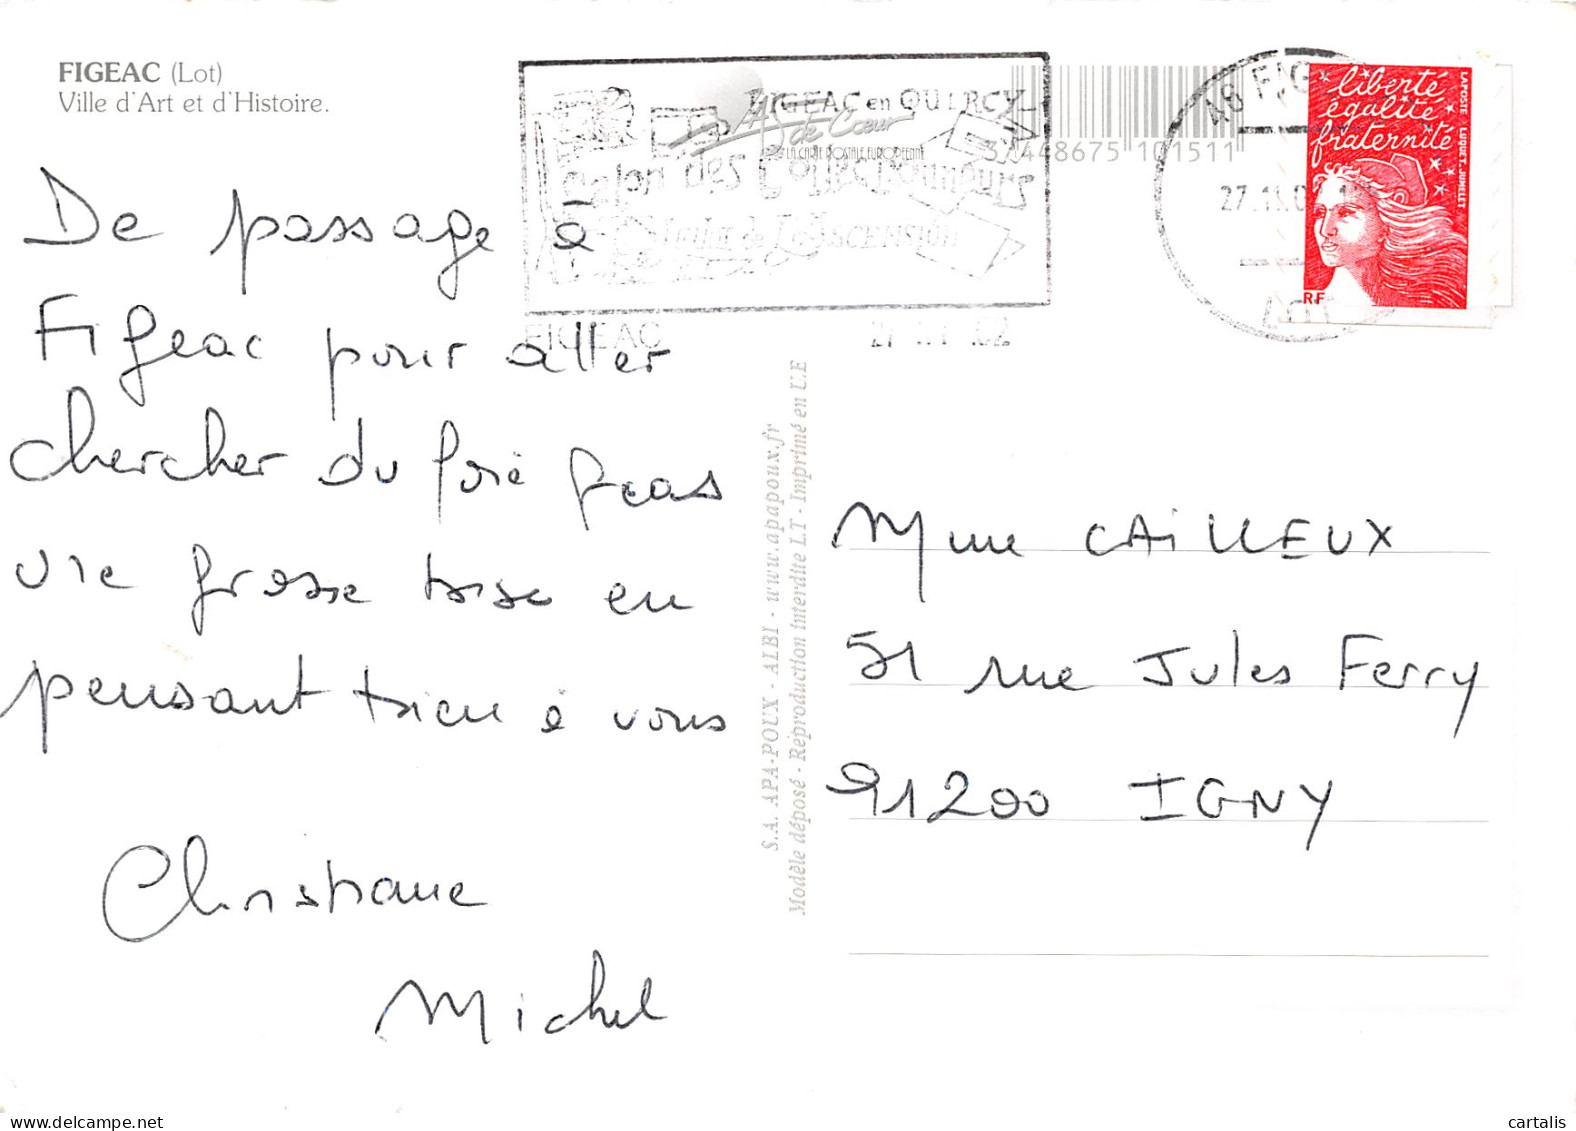 FIGEAC (Lot)
Ville d'Art et d'Histoire.
De passage à
Figeac pour aller
chercher du foie gras
une grosse bise en
pensant bien à vous
Christiane
Michel
FIGEAC en QUERCY
L'AS de Cœur
LA CARTE POSTALE EUROPEENNE
Salon des Collectionneurs
de L'ASCENSION
FIGEAC
3 448675 101511
46 FIG
27.11.02
LOT
liberté
égalité
fraternité
LA POSTE LUQUET. JUMELET
RF
S.A. APA-POUX - ALBI - www.apapoux.fr
Modèle déposé - Réproduction interdite LT - Imprimé en U.E
Mme CAILLEUX
51 rue Jules Ferry
91200 IGNY
cartalis